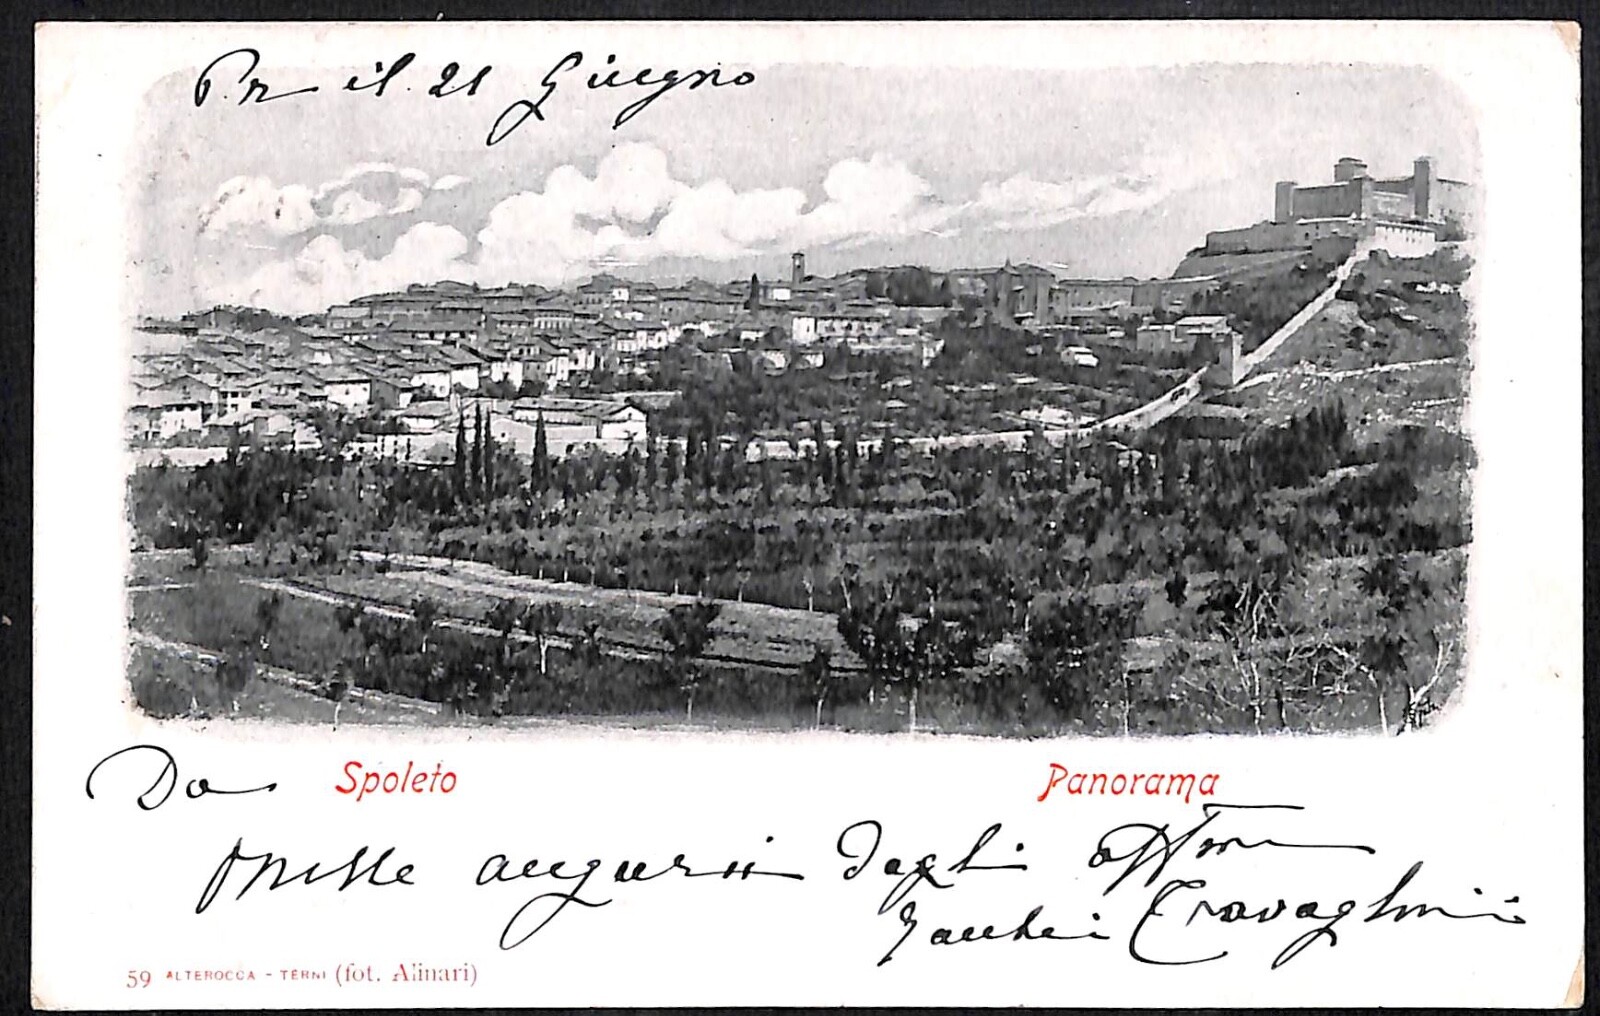 Per il 21 Giugno
Da Spoleto Panorama
Mille augurii dagli aff.mi
Travaglini
59 ALTEROCCA - TERNI (fot. Alinari)